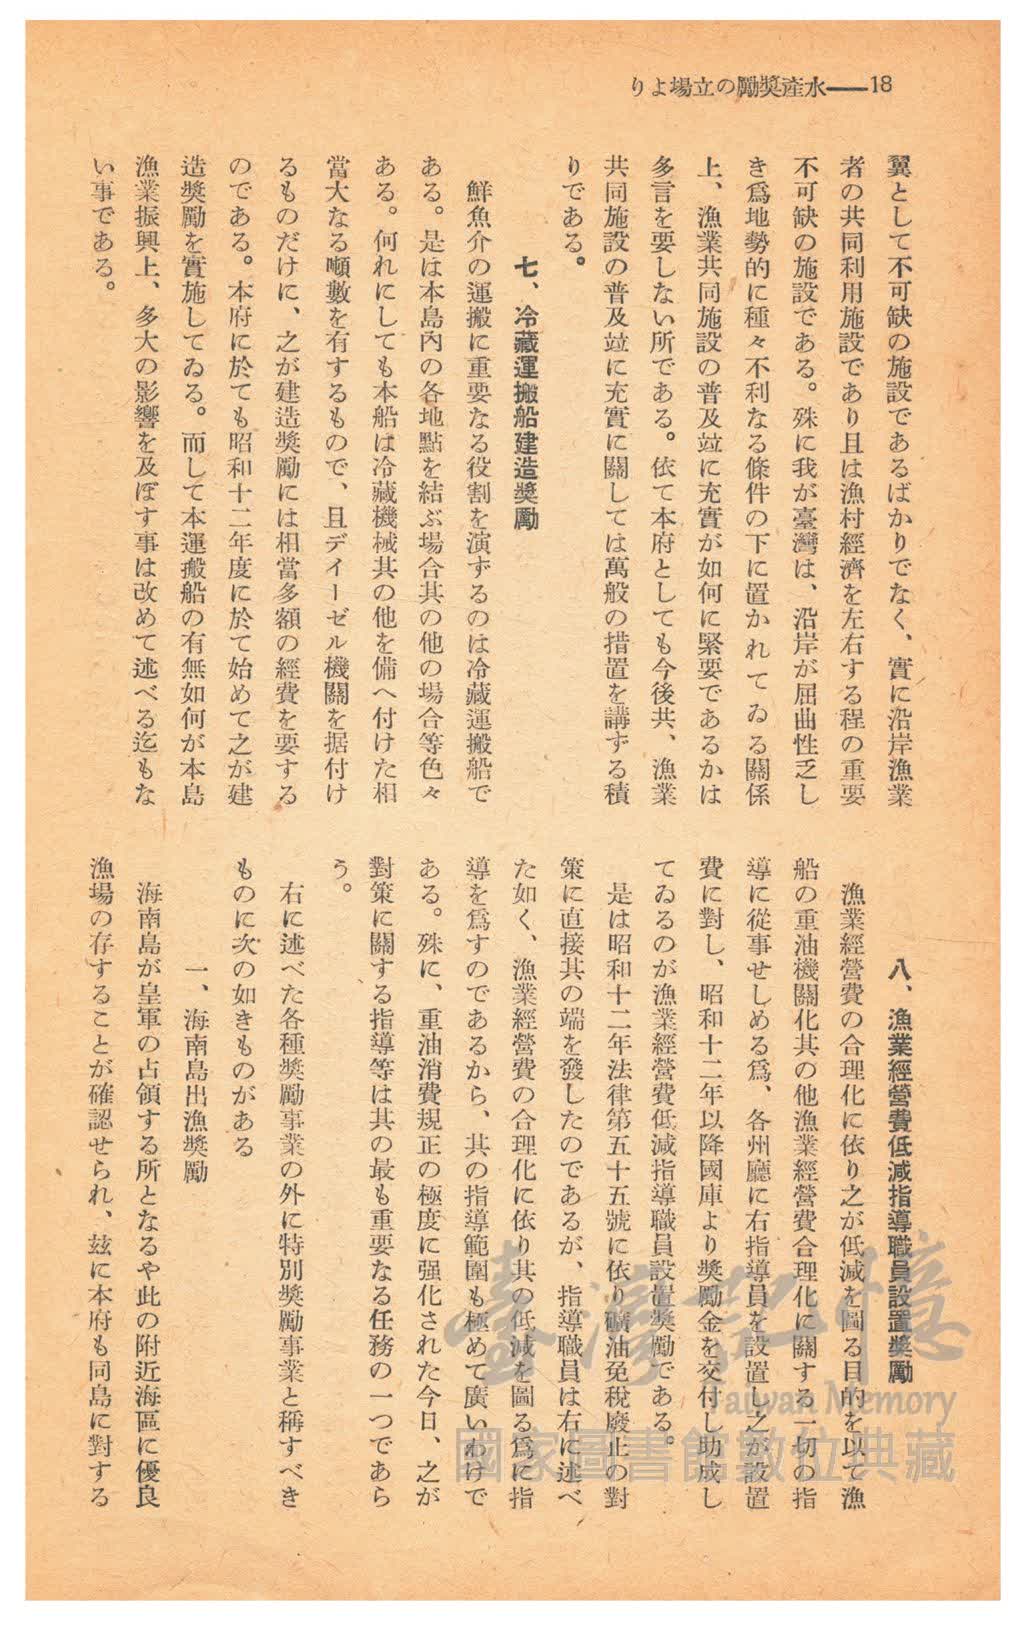 りよ場立の勵奬產水━━18
翼として不可缺の施設であるばかりでなく、實に沿岸漁業
者の共同利用施設であり且は漁村經濟を左右する程の重要
不可缺の施設である。殊に我が臺灣は、沿岸が屈曲性乏し
き爲地勢的に種々不利なる條件の下に置かれてゐる關係
上、漁業共同施設の普及竝に充實が如何に緊要であるかは
多言を要しない所である。依て本府としても今後共、漁業
共同施設の普及竝に充實に關しては萬般の措置を講ずる積
りである。
七、冷藏運搬船建造奬勵
鮮魚介の運搬に重要なる役割を演ずるのは冷藏運搬船で
ある。是は本島內の各地點を結ぶ場合其の他の場合等色々
ある。何れにしても本船は冷藏機械其の他を備へ付けた相
當大なる噸數を有するもので、且デイーゼル機關を据付け
るものだけに、之が建造奬勵には相當多額の經費を要する
のである。本府に於ても昭和十二年度に於て始めて之が建
造奬勵を實施してゐる。而して本運搬船の有無如何が本島
漁業振興上、多大の影響を及ぼす事は改めて述べる迄もな
い事である。
八、漁業經營費低減指導職員設置奬勵
漁業經營費の合理化に依り之が低減を圖る目的を以て漁
船の重油機關化其の他漁業經營費合理化に關する一切の指
導に從事せしめる爲、各州廳に右指導員を設置し之が設置
費に對し、昭和十二年以降國庫より奬勵金を交付し助成し
てゐるのが漁業經營費低減指導職員設置奬勵である。
是は昭和十二年法律第五十五號に依り礦油免稅廢止の對
策に直接其の端を發したのであるが、指導職員は右に述べ
た如く、漁業經營費の合理化に依り其の低減を圖る爲に指
導を爲すのであるから、其の指導範圍も極めて廣いわけで
ある。殊に、重油消費規正の極度に强化された今日、之が
對策に關する指導等は其の最も重要なる任務の一つであら
う。
右に述べた各種奬勵事業の外に特別奬勵事業と稱すべき
ものに次の如きものがある
一、海南島出漁奬勵
海南島が皇軍の占領する所となるや此の附近海區に優良
漁場の存することが確認せられ、玆に本府も同島に對する
臺灣記憶
Taiwan Memory
國家圖書館數位典藏